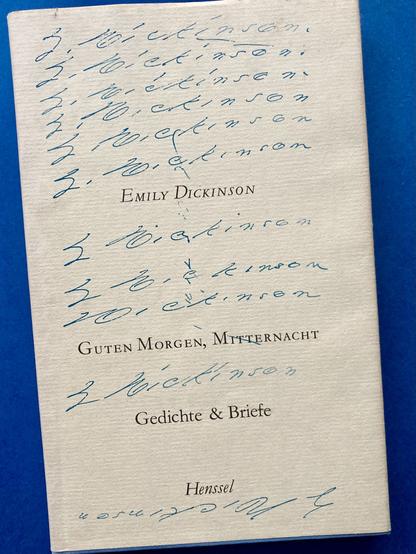 E. Dickinson.
E. Dickinson.
E. Dickinson.
E. Dickinson
E. Dickinson
E. Dickinson
EMILY DICKINSON
E Dickinson
E Dickinson
Dickinson
GUTEN MORGEN, MITTERNACHT
E Dickinson
Gedichte & Briefe
Henssel
E Dickinson